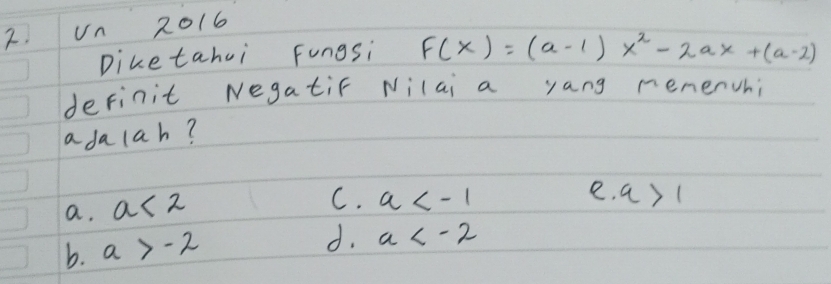 2. Un 2016
Diketahui Fungsi F(x) = (a-1) x² - 2ax + (a-2)
definit Negatif Nilai a yang memenuhi
adalah?
a. a < 2 C. a < -1 e. a > 1
b. a > -2 d. a < -2